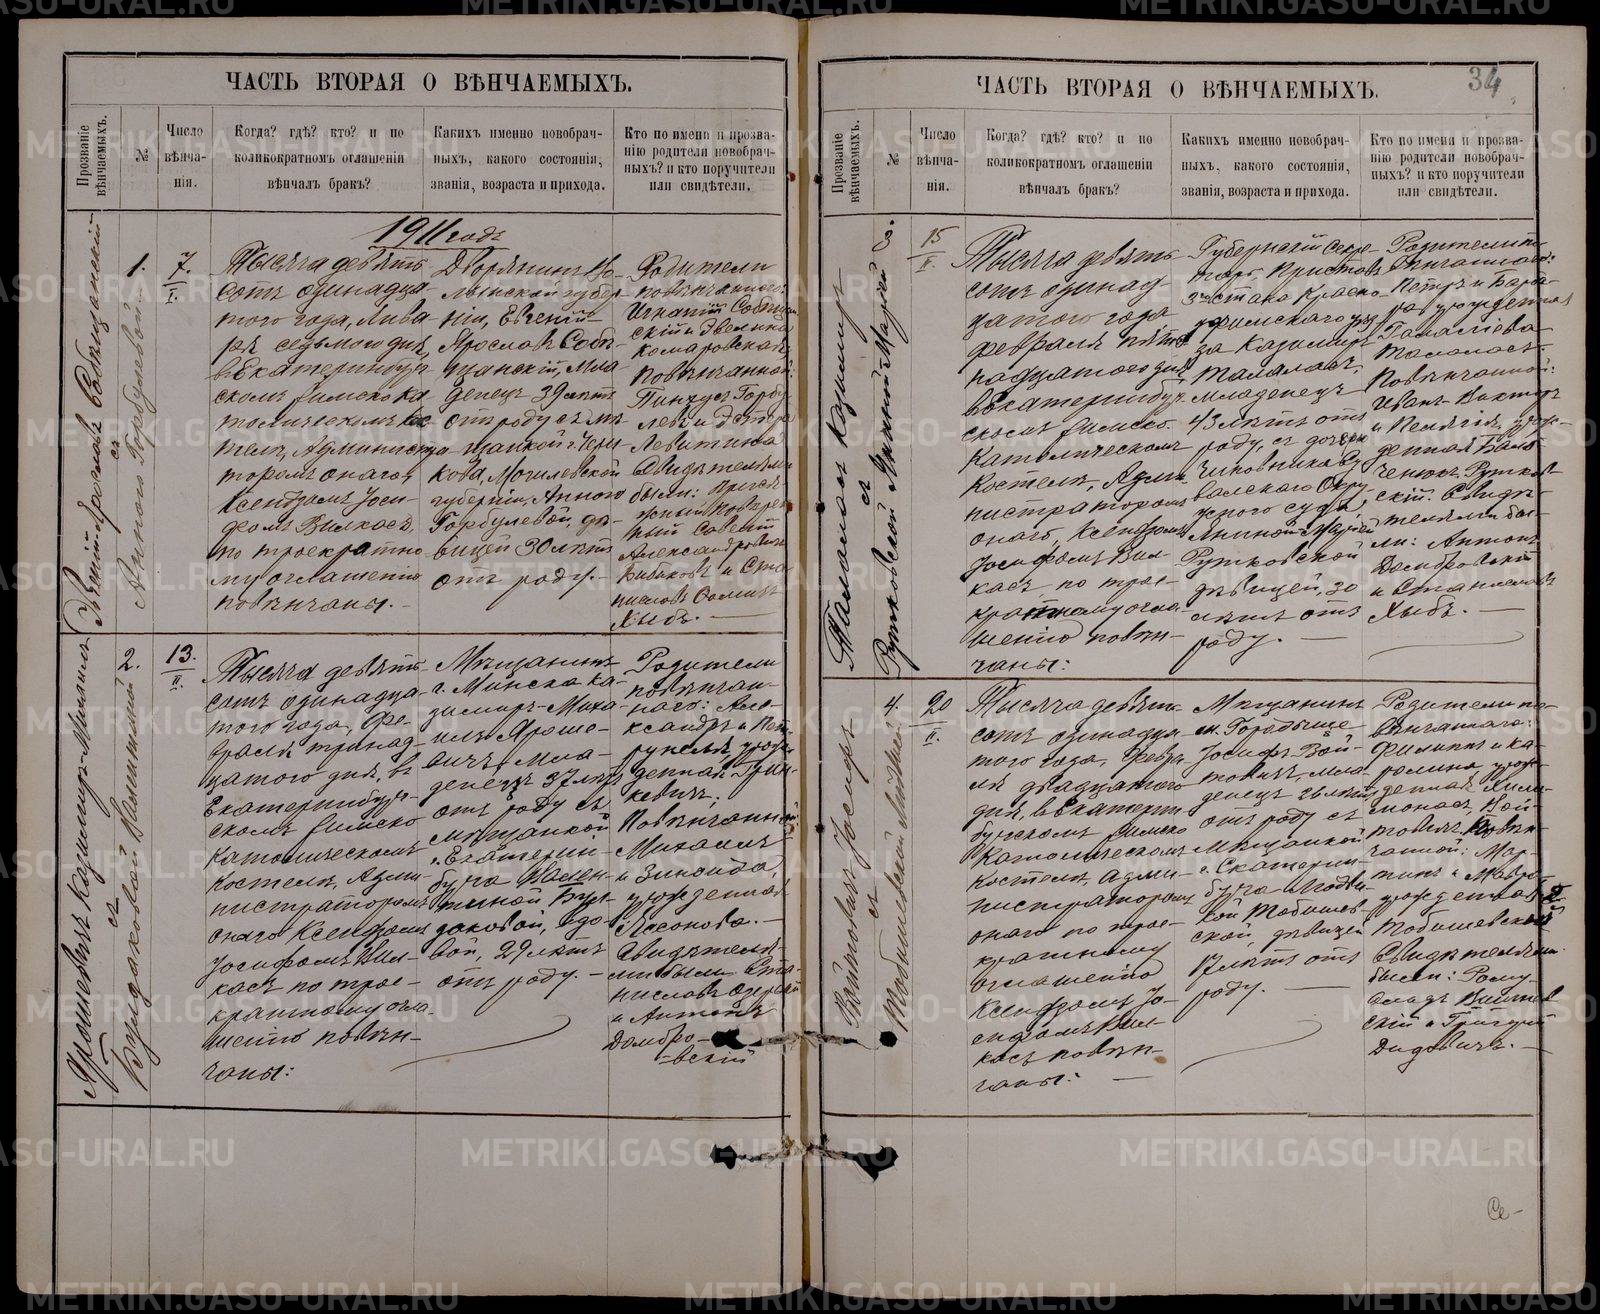 ЧАСТЬ ВТОРАЯ О ВѢНЧАЕМЫХЪ.
Прозваніе вѣнчаемыхъ.
№
Число
вѣнча-
нія.
Когда? гдѣ? кто? и по
коликократномъ оглашеніи
вѣнчалъ бракъ?
Какихъ именно новобрач-
ныхъ, какого состоянія,
званія, возраста и прихода.
Кто по имени и прозва-
нію родители новобрач-
ныхъ? и кто поручители
или свидѣтели.
1911 годъ
Евгеній-Ярославъ
съ
Анною Горбулевой
1.
7.
I.
Тысяча девять
сотъ одинадца
того года, Янва
ря седьмого дня,
въ Екатеринбур
скомъ Римско Ка
толическомъ Кос
телѣ, Администра
торомъ онаго,
Ксендзомъ Іоси-
фомъ Вилкасъ,
по троекратно
му оглашенію
повѣнчаны.
Дворянинъ Во-
лынской губер
ніи, Евгеній
Ярославъ
Мла
денецъ 39 лѣтъ
отъ роду съ мѣ
щанкой г. Чери
кова, Могилевской
губерніи, Анною
Горбулевой, дѣ-
вицей 30 лѣтъ
отъ роду.
Родители
повѣнчаннаго:
Игнатій
Комаровская,
Повѣнчанной:
Пинхусъ Горбу
левъ и Эстера
Левитина
Свидѣтелями
были: Присяж
ный Повѣрен
ный Савелій
Александровичъ
Бибиковъ и Ста
ниславъ
Хыбъ.
Ярошевичъ Казимиръ-Михаилъ
съ
Бурдаковой Валентиной
2.
13.
II.
Тысяча девять
сотъ одинадца
того года, Фе-
враля тринад
цатого дня, въ
Екатеринбур-
скомъ Римско
Католическомъ
Костелѣ, Адми-
нистраторомъ
онаго Ксендзомъ
Іосифомъ Вил-
касъ по трое-
кратному огла-
шенію повѣн-
чаны:
Мѣщанинъ
г. Минска Ка-
зимиръ-Миха-
илъ Яроше-
вичъ, мла-
денецъ 37 лѣтъ
отъ роду съ
мѣщанкой
г. Екатерин-
бурга Вален-
тиной Бур-
даковой, вдо-
вой, 29 лѣтъ
отъ роду.
Родители
повѣнчан-
наго: Але-
ксандръ и Пет-
рунеля, урож-
денная Грин-
кевичъ;
Повѣнчанной
Михаилъ
и Зинаида,
урожденная
Свидѣтеля-
ми были Ста-
ниславъ
и Антонъ
Домбро-
-вскій
ЧАСТЬ ВТОРАЯ О ВѢНЧАЕМЫХЪ.
34
Прозваніе вѣнчаемыхъ.
№
Число
вѣнча-
нія.
Когда? гдѣ? кто? и по
коликократномъ оглашеніи
вѣнчалъ бракъ?
Какихъ именно новобрач-
ныхъ, какого состоянія,
званія, возраста и прихода.
Кто по имени и прозва-
нію родители новобрач-
ныхъ? и кто поручители
или свидѣтели.
Талаласъ Казимиръ
съ
Рутковской Яниной-Маріей
3.
15
II.
Тысяча девять
сотъ одинад-
цатого года
февраля пят
надцатого дня
въ Екатеринбур
скомъ Римско
Католическомъ
Костелѣ, Адми
нистраторомъ
онаго, Ксендзомъ
Іосифомъ Вил-
касъ по трое-
кратному огла
шенію повѣн-
чаны:
Губернскій Секре-
тарь, Приставъ
3го стана Красно-
уфимскаго уѣз
да Казимиръ
Талаласъ,
младенецъ
43 лѣтъ отъ
роду, съ дочерью
Чиновника
скаго Окру
жного суда,
Яниной-Маріей
Рутковской
дѣвицей, 30
лѣтъ отъ
роду.
Родители по-
вѣнчаннаго:
Петръ и Варва-
ра урожденная
Талаласъ.
Повѣнчанной:
Иванъ-Викторъ
и Пелагія, урож-
денная
Рутков
скій. Свидѣ-
телями бы-
ли: Антонъ
Домбровскій
и Станиславъ
Хыбъ.
Войтовичъ Іосифъ
съ
4.
20
II.
Тысяча девять
сотъ одинадца
того года, февра
ля двадцатого
дня, въ Екатерин
бурскомъ Римско
Католическомъ
Костелѣ, Адми-
нистраторомъ
онаго по трое-
кратному
оглашенію
Ксендзомъ Іо-
сифомъ Вил-
касъ повѣн-
чаны:
Мѣщанинъ
м. Городыще
Іосифъ Вой-
товичъ, мла-
денецъ 26 лѣтъ
отъ роду съ
мѣщанкой
г. Екатерин-
бурга
ской, дѣвицей
17 лѣтъ отъ
роду.
Родители по-
вѣнчаннаго:
Филиппъ и Ка-
ролина, урож-
денная
Вой-
товичъ. Повѣн-
чанной: Мар-
тинъ и
урожденная
Свидѣтелями
были: Рому-
альдъ
скій и Григорій
Дидовичъ.
Се-
METRIKI.GASO-URAL.RU